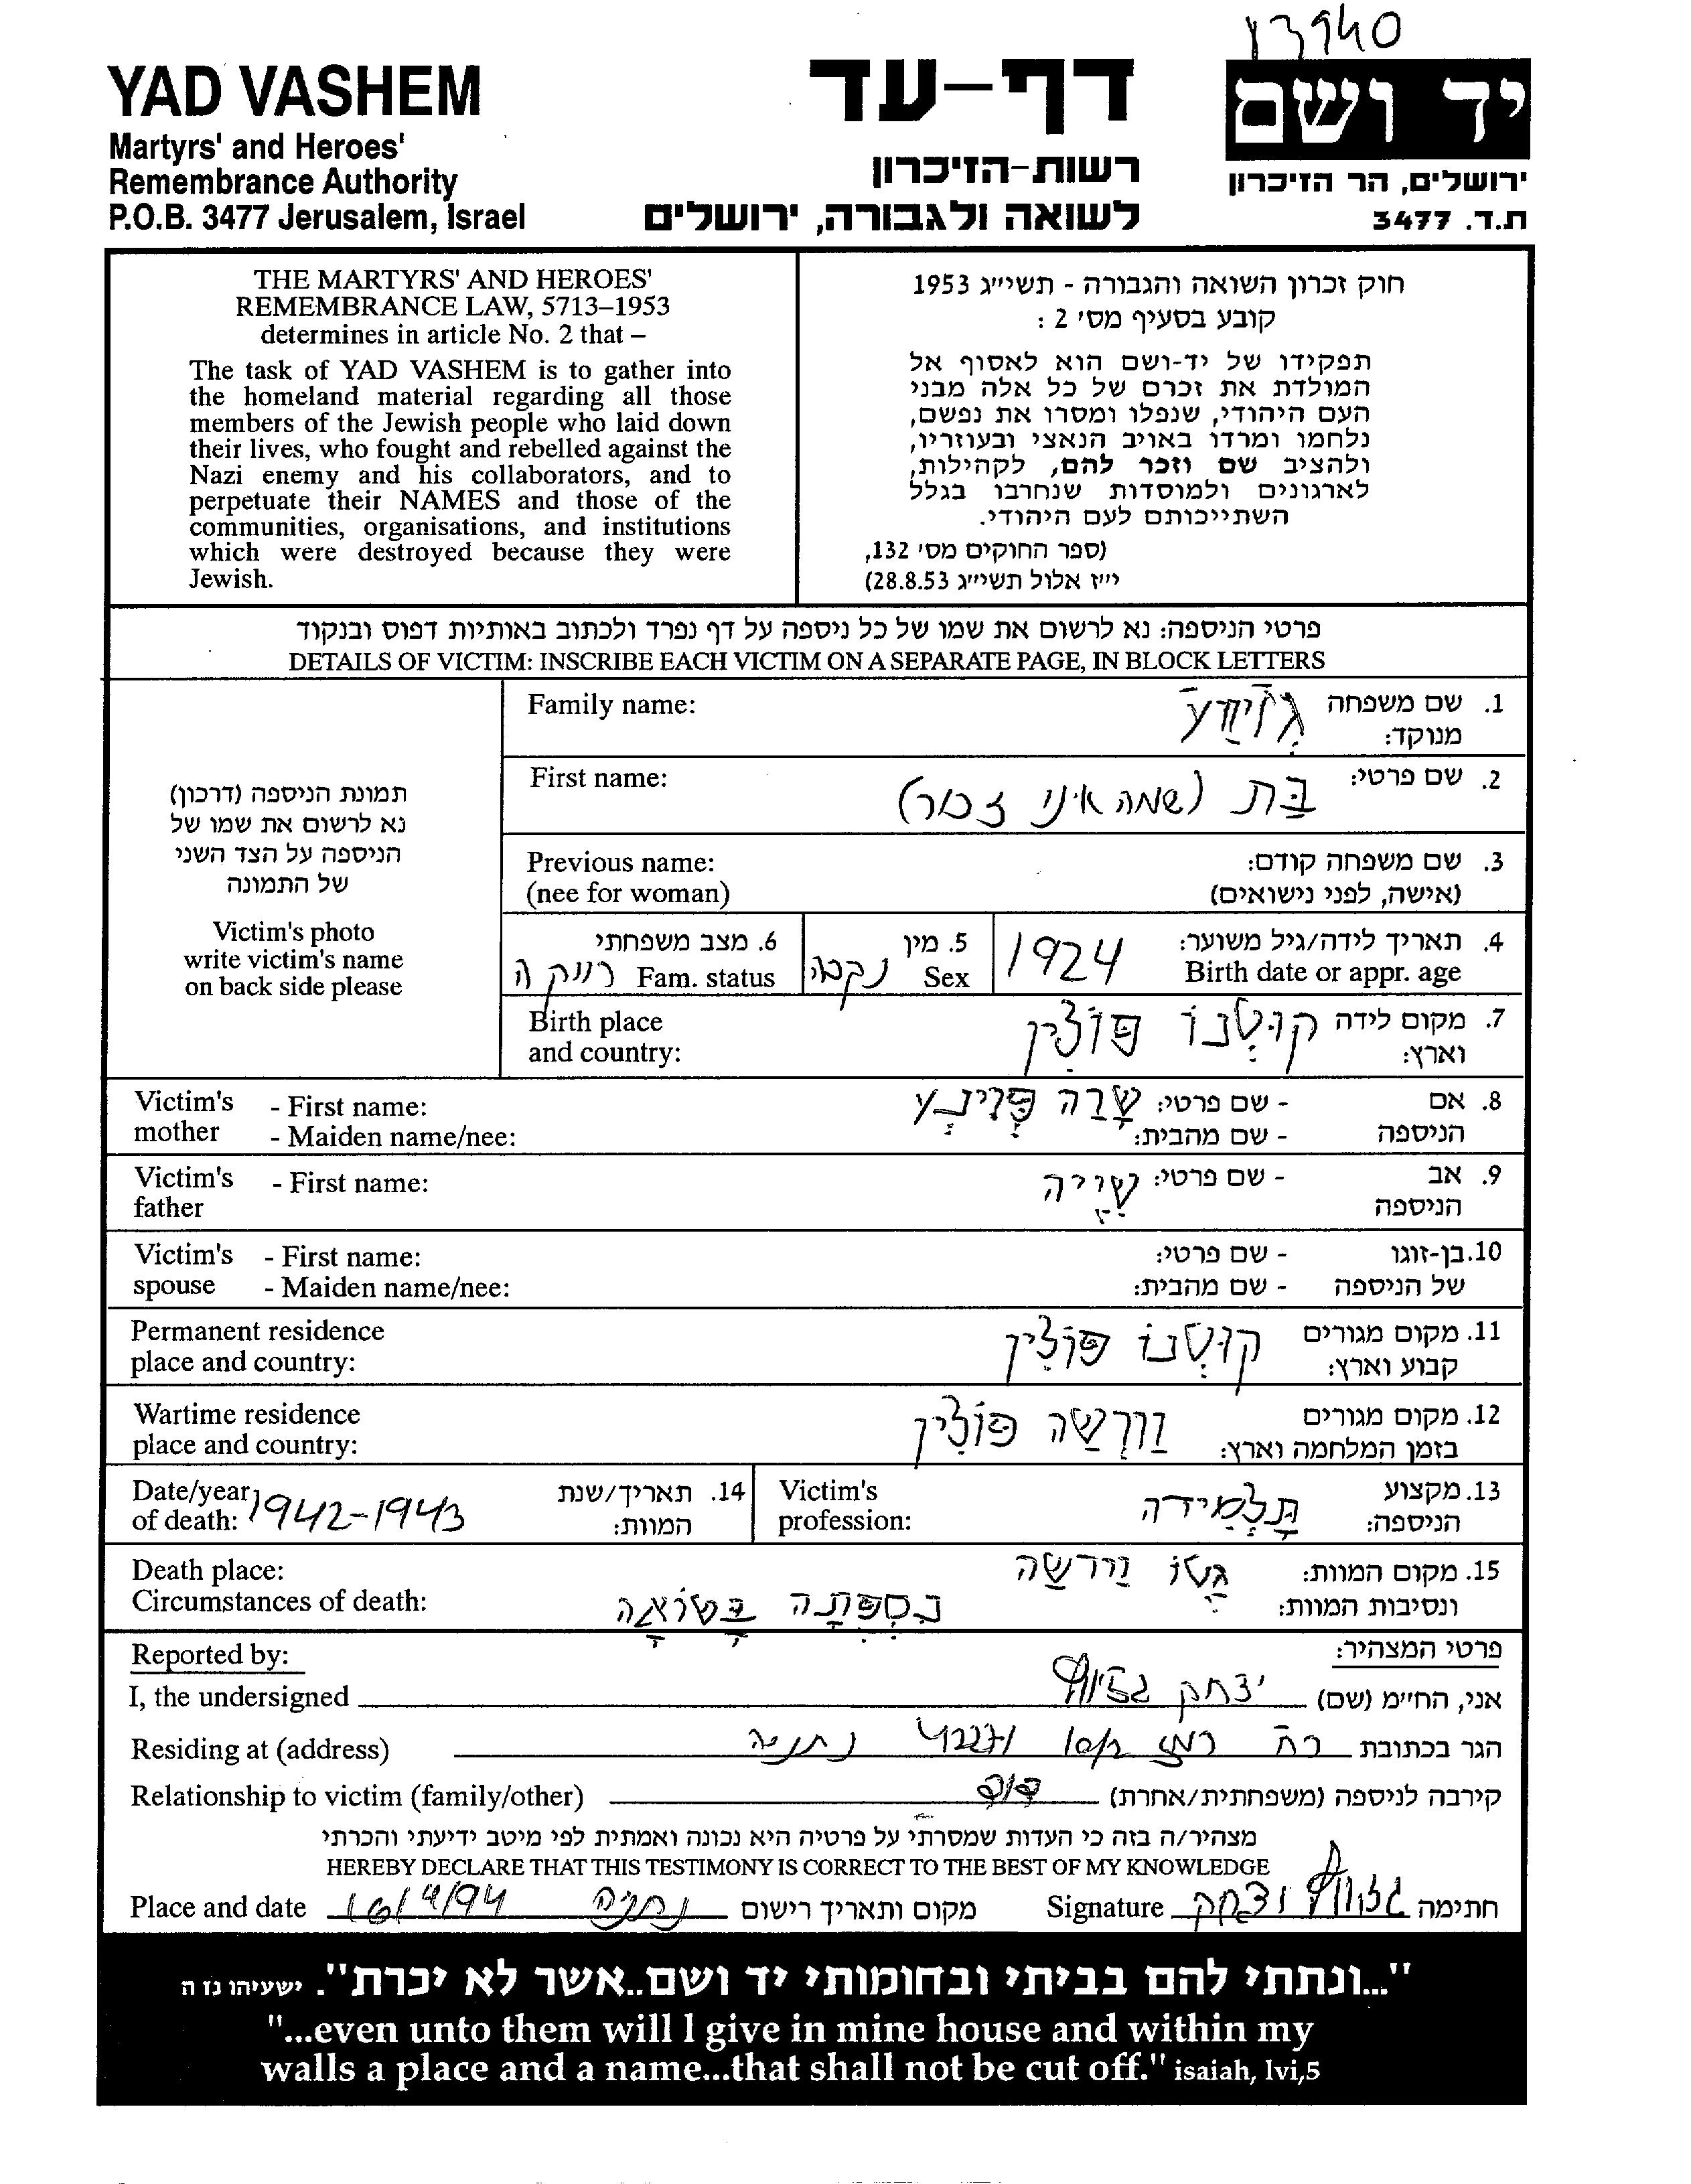 13940
YAD VASHEM
Martyrs' and Heroes'
Remembrance Authority
P.O.B. 3477 Jerusalem, Israel
דף-עד
רשות-הזיכרון
לשואה ולגבורה, ירושלים
יד ושם
ירושלים, הר הזיכרון
ת.ד. 3477
THE MARTYRS' AND HEROES'
REMEMBRANCE LAW, 5713–1953
determines in article No. 2 that –
The task of YAD VASHEM is to gather into
the homeland material regarding all those
members of the Jewish people who laid down
their lives, who fought and rebelled against the
Nazi enemy and his collaborators, and to
perpetuate their NAMES and those of the
communities, organisations, and institutions
which were destroyed because they were
Jewish.
חוק זכרון השואה והגבורה - תשי״ג 1953
קובע בסעיף מס׳ 2 :
תפקידו של יד-ושם הוא לאסוף אל
המולדת את זכרם של כל אלה מבני
העם היהודי, שנפלו ומסרו את נפשם,
נלחמו ומרדו באויב הנאצי ובעוזריו,
ולהציב שם וזכר להם, לקהילות,
לארגונים ולמוסדות שנחרבו בגלל
השתייכותם לעם היהודי.
(ספר החוקים מס׳ 132,
י״ז אלול תשי״ג 28.8.53)
פרטי הניספה: נא לרשום את שמו של כל ניספה על דף נפרד ולכתוב באותיות דפוס ובנקוד
DETAILS OF VICTIM: INSCRIBE EACH VICTIM ON A SEPARATE PAGE, IN BLOCK LETTERS
תמונת הניספה (דרכון)
נא לרשום את שמו של
הניספה על הצד השני
של התמונה
Victim's photo
write victim's name
on back side please
Family name:
1. שם משפחה
מנוקד:
First name: בת (שמה איני זכור) 2. שם פרטי:
Previous name:
(nee for woman)
3. שם משפחה קודם:
(אישה, לפני נישואים)
4. תאריך לידה/גיל משוער: 1924
Birth date or appr. age
5. מין נקבה
Sex
6. מצב משפחתי
Fam. status רווקה
Birth place
and country:
7. מקום לידה קוטנו פולין
וארץ:
Victim's - First name:
mother - Maiden name/nee:
8. אם - שם פרטי: שרה
הניספה - שם מהבית:
Victim's - First name:
father
9. אב - שם פרטי: שייה
הניספה
Victim's - First name:
spouse - Maiden name/nee:
10. בן-זוגו - שם פרטי:
של הניספה - שם מהבית:
Permanent residence
place and country:
11. מקום מגורים קוטנו פולין
קבוע וארץ:
Wartime residence
place and country:
12. מקום מגורים ורשה פולין
בזמן המלחמה וארץ:
Date/year
of death: 1942-1943
14. תאריך/שנת
המוות:
Victim's
profession:
13. מקצוע תלמידה
הניספה:
Death place:
Circumstances of death:
15. מקום המוות: גטו ורשה
ונסיבות המוות: נספתה בשואה
Reported by:
פרטי המצהיר:
I, the undersigned יצחק אני, החי״מ (שם)
Residing at (address) נתניה 42271 הגר בכתובת
Relationship to victim (family/other) קירבה לניספה (משפחתית/אחרת)
מצהיר/ה בזה כי העדות שמסרתי על פרטיה היא נכונה ואמתית לפי מיטב ידיעתי והכרתי
HEREBY DECLARE THAT THIS TESTIMONY IS CORRECT TO THE BEST OF MY KNOWLEDGE
Place and date 16/4/94 נתניה מקום ותאריך רישום Signature יצחק חתימה
"...ונתתי להם בביתי ובחומותי יד ושם..אשר לא יכרת". ישעיהו נז ה
"...even unto them will I give in mine house and within my
walls a place and a name...that shall not be cut off." isaiah, lvi,5